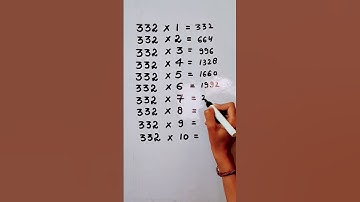 332 x 1 = 332
332 x 2 = 664
332 x 3 = 996
332 x 4 = 1328
332 x 5 = 1660
332 x 6 = 1992
332 x 7 = 2
332 x 8 =
332 x 9 =
332 x 10 =